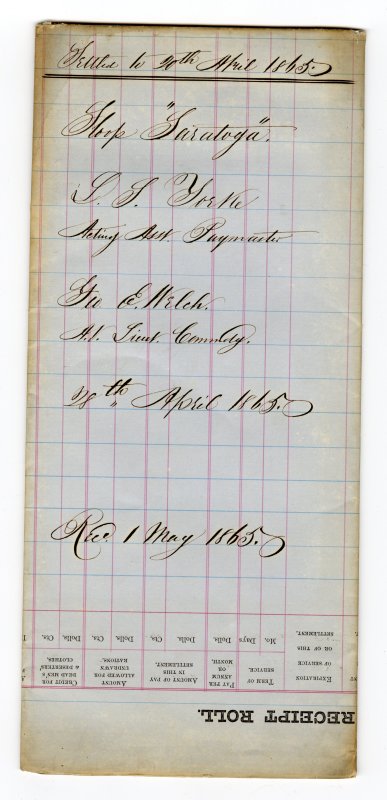 Settled to 20th April 1865.
Sloop "Saratoga".
L. S. Yorke
Acting Asst. Paymaster
Geo E. Welch.
A.V. Lieut. Commdg.
28th April 1865.
Rec. 1 May 1865.
RECEIPT ROLL.
EXPIRATION OF SERVICE OR OF THIS SETTLEMENT.
TERM OF SERVICE.
Mo. Days
PAY PER ANNUM OR MONTH.
Dolls. Cts.
AMOUNT OF PAY IN THIS SETTLEMENT.
Dolls. Cts.
AMOUNT ALLOWED FOR UNDRAWN RATIONS.
Dolls. Cts.
CREDIT FOR DEAD MEN'S & DESERTERS' CLOTHES.
Dolls. Cts.